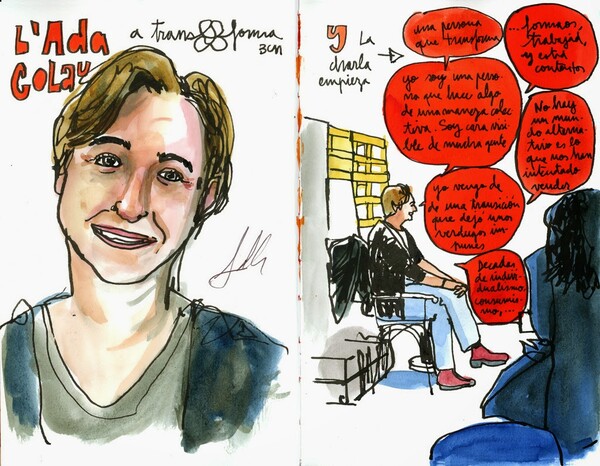 L'Ada
Colau
a trans forma
BCN
y La
charla
empieza
una persona
que transforma
...formaos,
trabajad,
y estad
contentos
yo soy una perso
na que hace algo
de una manera colec
tiva. Soy cara visi
ble de mucha gente
No hay
un mun
do alterna
tivo es lo
que nos han
intentado
vender
yo vengo de
de una transición
que dejó unos
verdugos im
punes
Decadas
de indivi
dualismo
consumis
mo,...